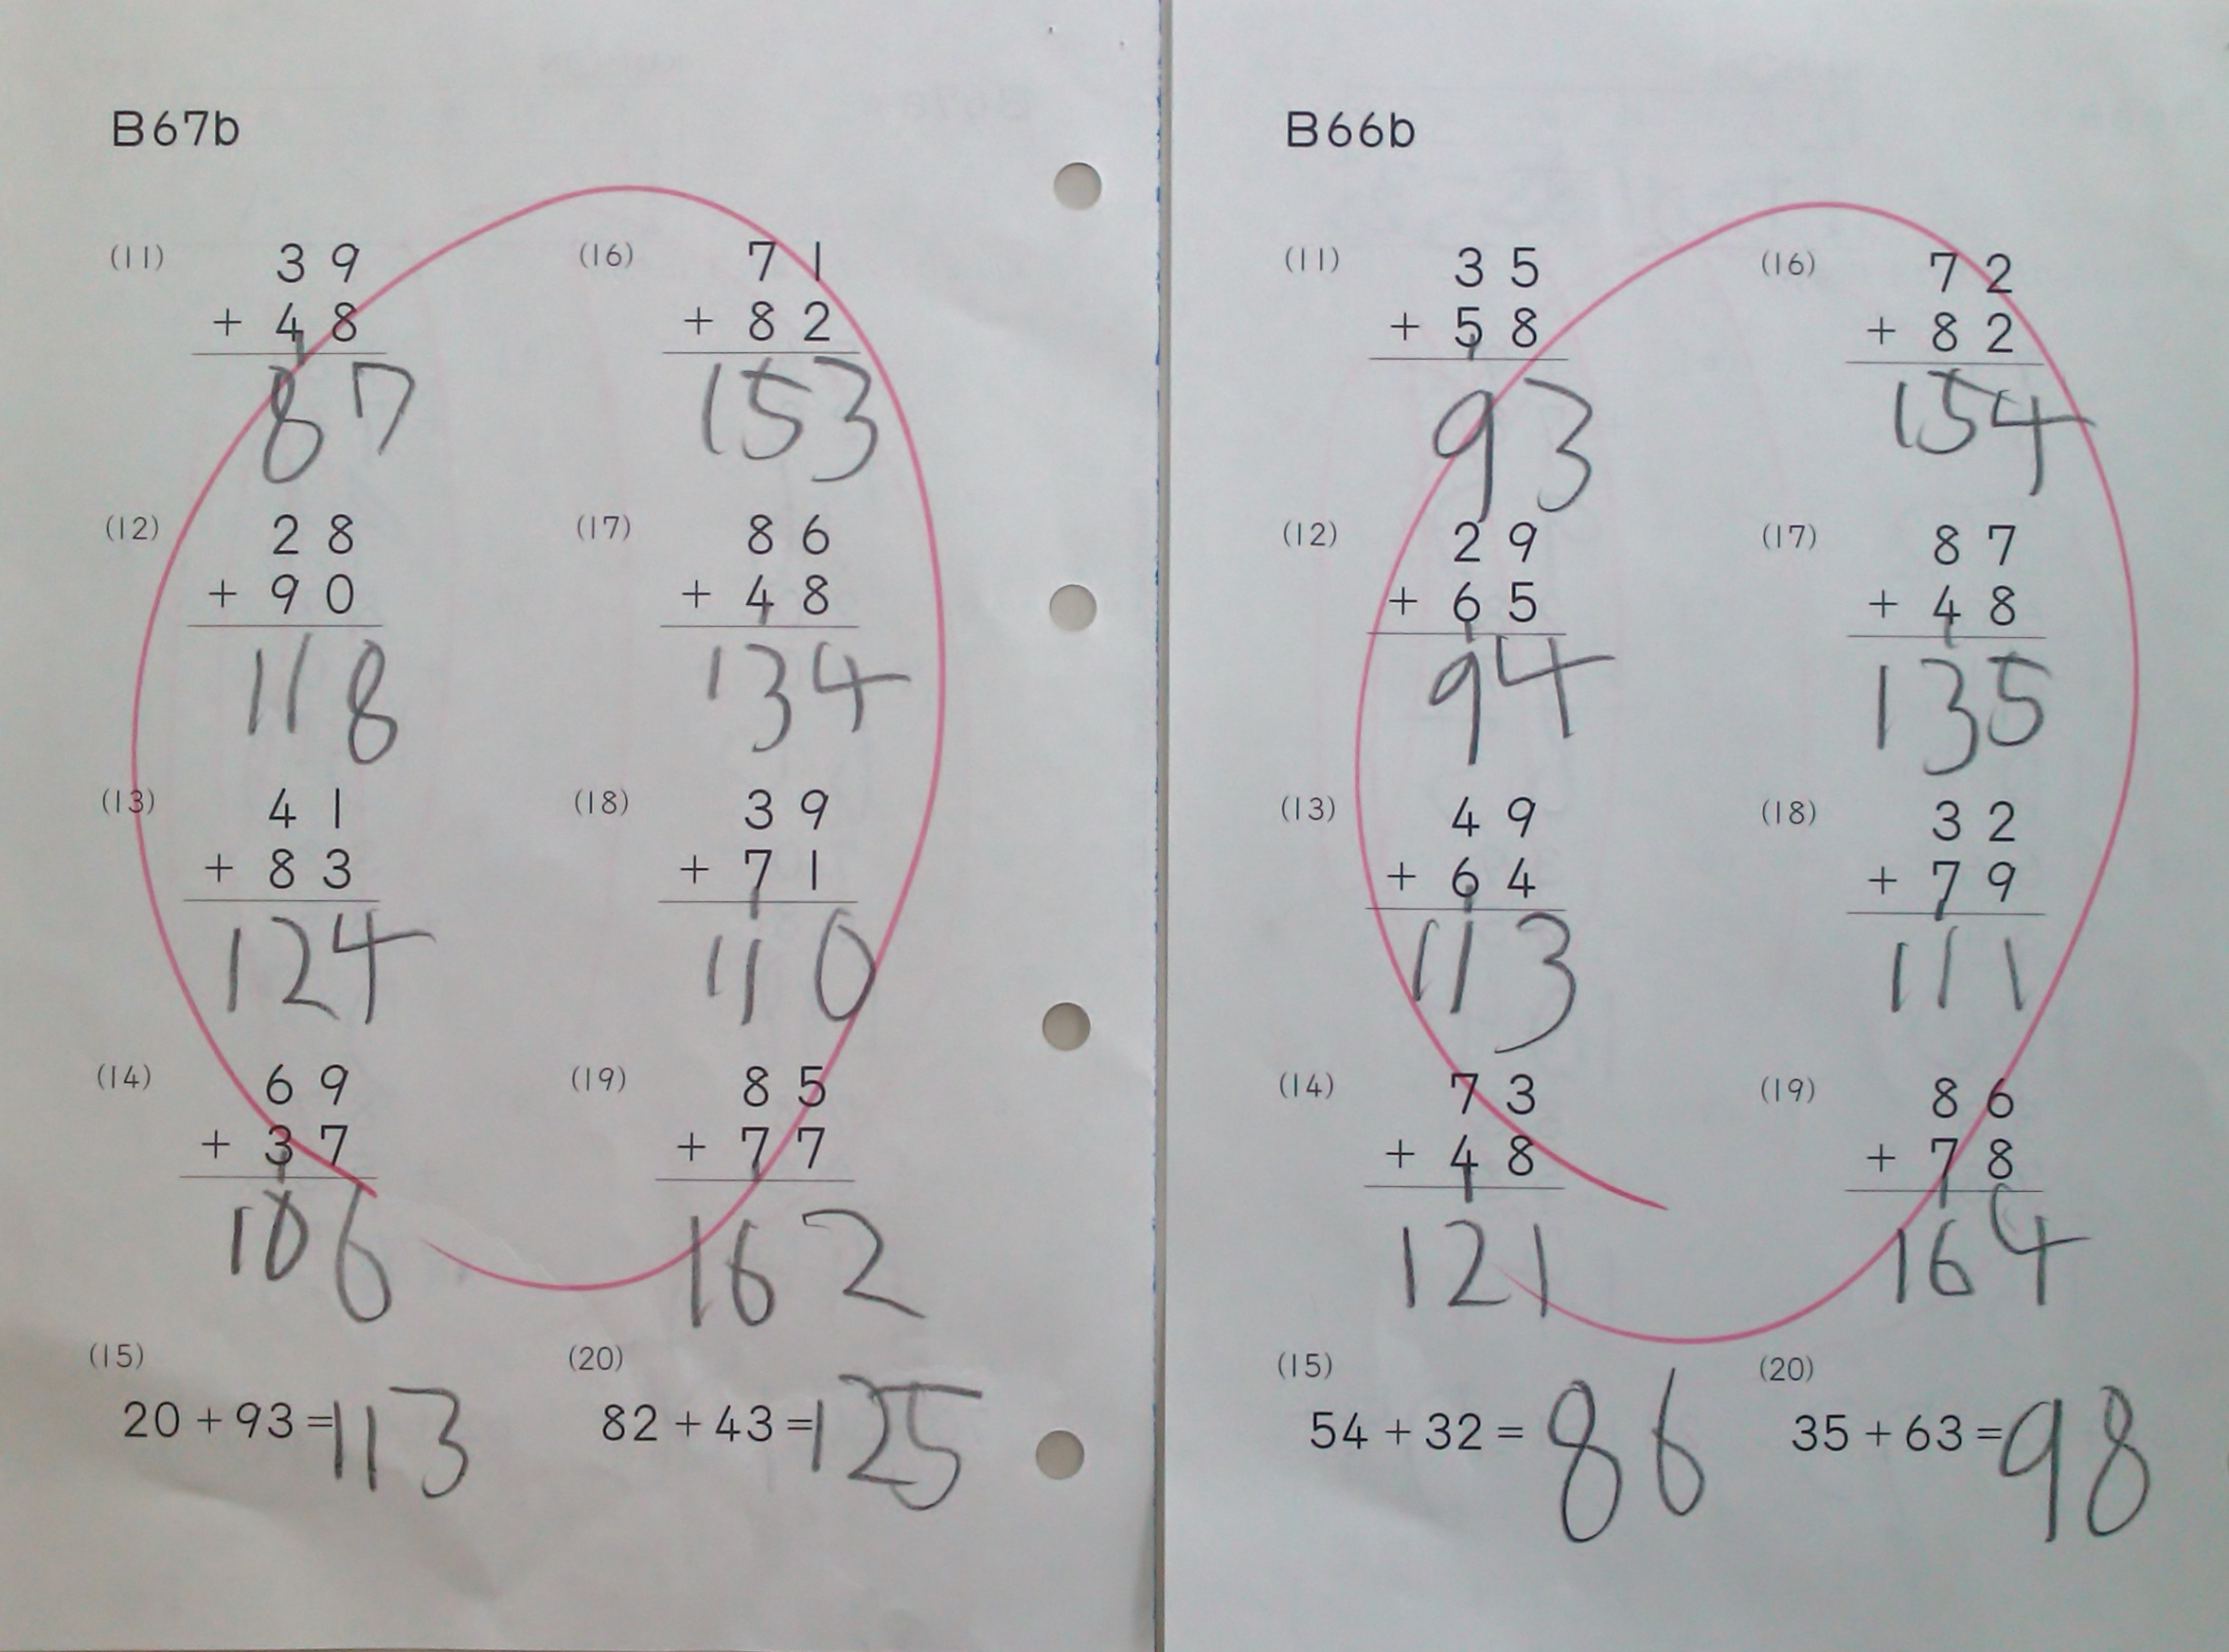 B67b
(11)
39
+ 48
87
(12)
28
+ 90
118
(13)
41
+ 83
124
(14)
69
+ 37
106
(15)
20+93=113
(16)
71
+ 82
153
(17)
86
+ 48
134
(18)
39
+ 71
110
(19)
85
+ 77
162
(20)
82+43=125
B66b
(11)
35
+ 58
93
(12)
29
+ 65
94
(13)
49
+ 64
113
(14)
73
+ 48
121
(15)
54+32=86
(16)
72
+ 82
154
(17)
87
+ 48
135
(18)
32
+ 79
111
(19)
86
+ 78
164
(20)
35+63=98